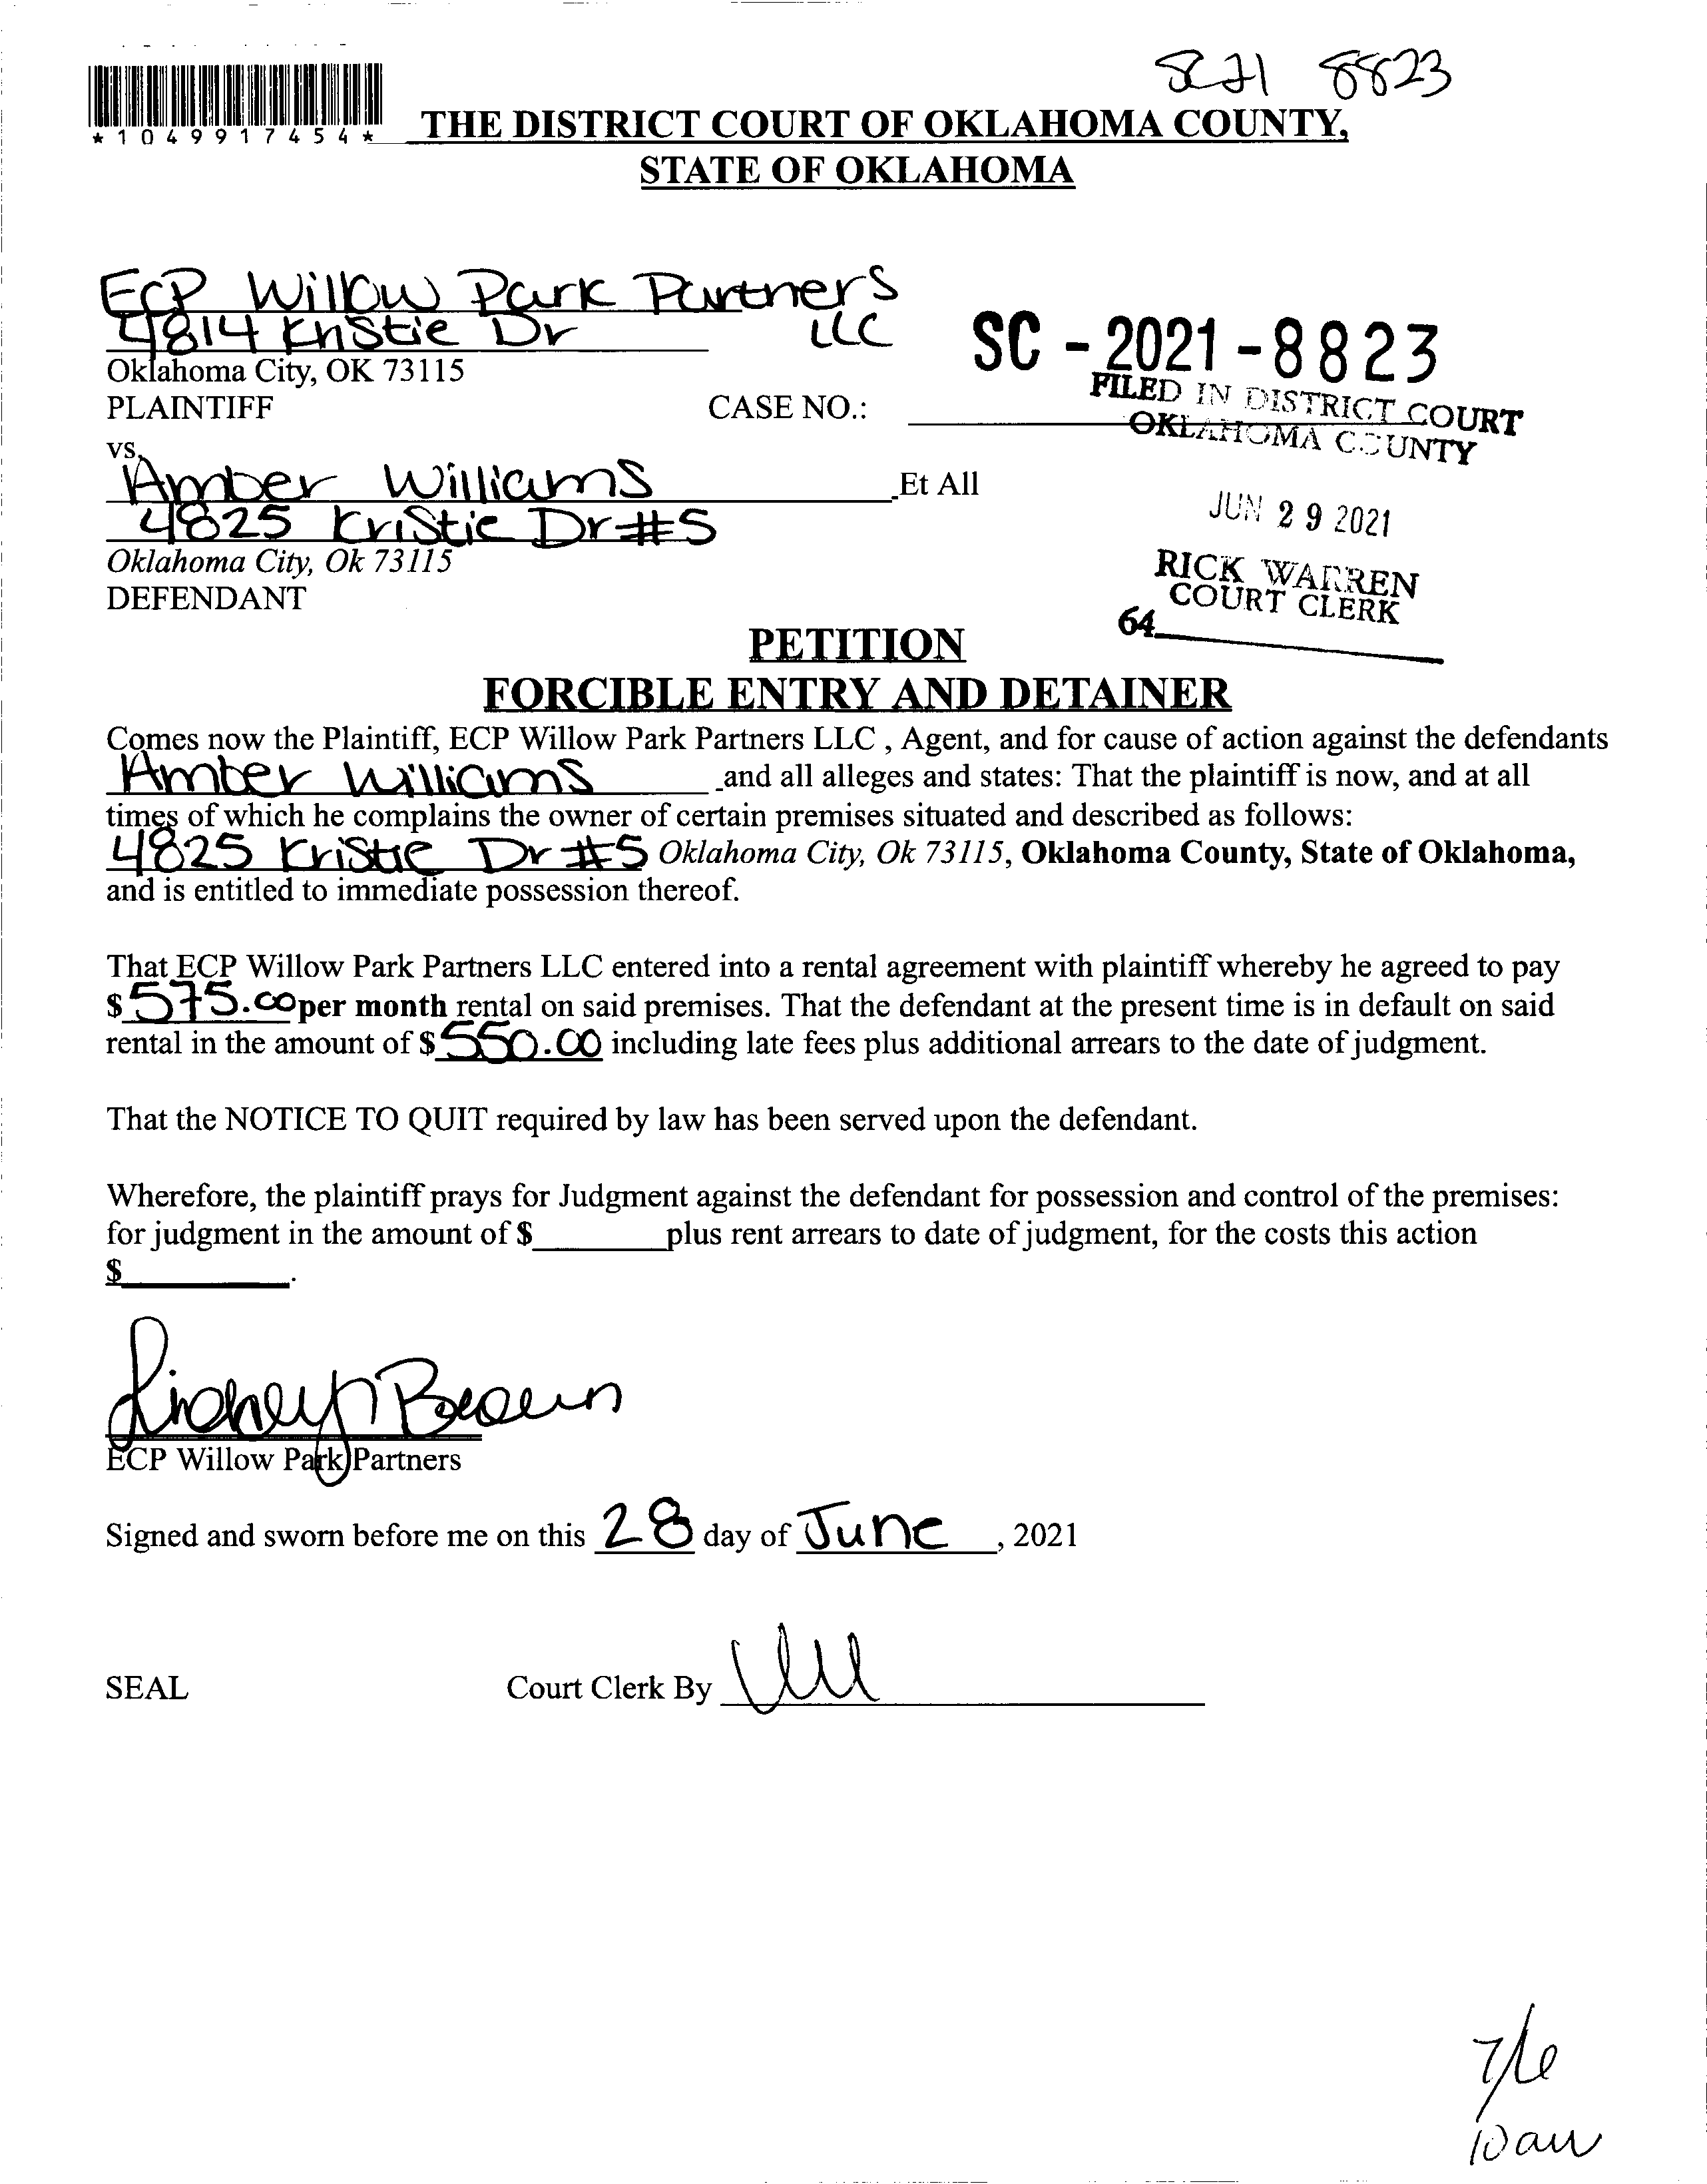 SC 21 8823
*1049917454*
THE DISTRICT COURT OF OKLAHOMA COUNTY,
STATE OF OKLAHOMA
ECP Willow Park Partners
LLC
4814 Kristie Dr
Oklahoma City, OK 73115
PLAINTIFF
CASE NO.:
SC - 2021 - 8823
FILED IN DISTRICT COURT
OKLAHOMA COUNTY
vs.
Amber Williams Et All
4825 Kristie Dr #5
Oklahoma City, Ok 73115
DEFENDANT
JUN 29 2021
RICK WARREN
COURT CLERK
64
PETITION
FORCIBLE ENTRY AND DETAINER
Comes now the Plaintiff, ECP Willow Park Partners LLC , Agent, and for cause of action against the defendants
Amber Williams and all alleges and states: That the plaintiff is now, and at all
times of which he complains the owner of certain premises situated and described as follows:
4825 Kristie Dr #5 Oklahoma City, Ok 73115, Oklahoma County, State of Oklahoma,
and is entitled to immediate possession thereof.
That ECP Willow Park Partners LLC entered into a rental agreement with plaintiff whereby he agreed to pay
$ 575.00 per month rental on said premises. That the defendant at the present time is in default on said
rental in the amount of $ 550.00 including late fees plus additional arrears to the date of judgment.
That the NOTICE TO QUIT required by law has been served upon the defendant.
Wherefore, the plaintiff prays for Judgment against the defendant for possession and control of the premises:
for judgment in the amount of $ plus rent arrears to date of judgment, for the costs this action
$ .
Brown
ECP Willow Park Partners
Signed and sworn before me on this 28 day of June , 2021
SEAL
Court Clerk By
7/6
10am